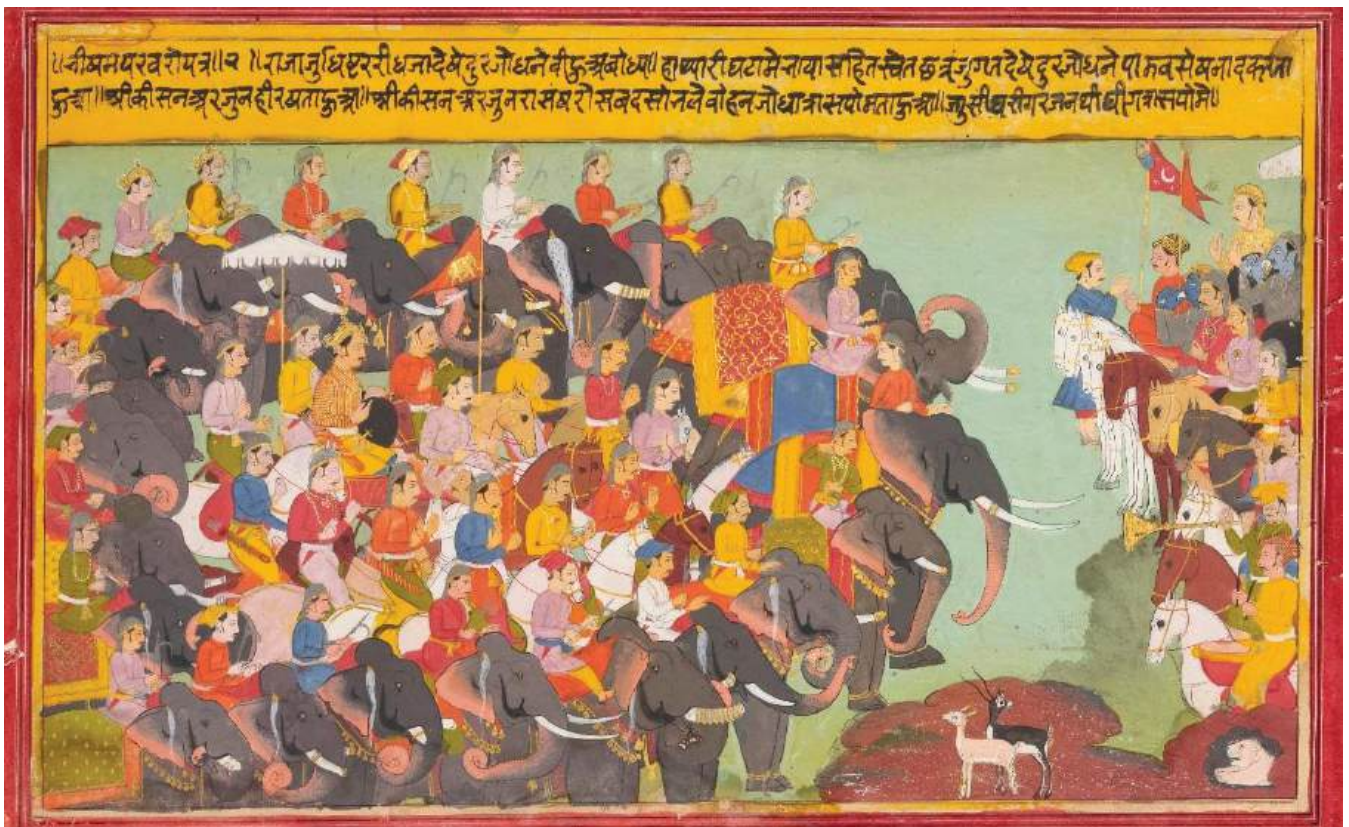 ॥भीषमपरवरोपत्र॥२ ॥राजाजुधिष्टररीधजादेषेदुरजोधनेवी अबोध्या॥हाथ्यारीघटामेचायासहितस्वेतछत्रजुगतदेषेदुरजोधनेपांडवसेषनादकरता
हुआ॥श्रीकीसनअरजुनहीरषताहुआ॥श्रीकीसनअरजुनरासंषरोसबदसोनदेवोहनजोधात्रासपांमताहुआ॥ज्युसीघरीगरजनथी त्रासपांमे॥